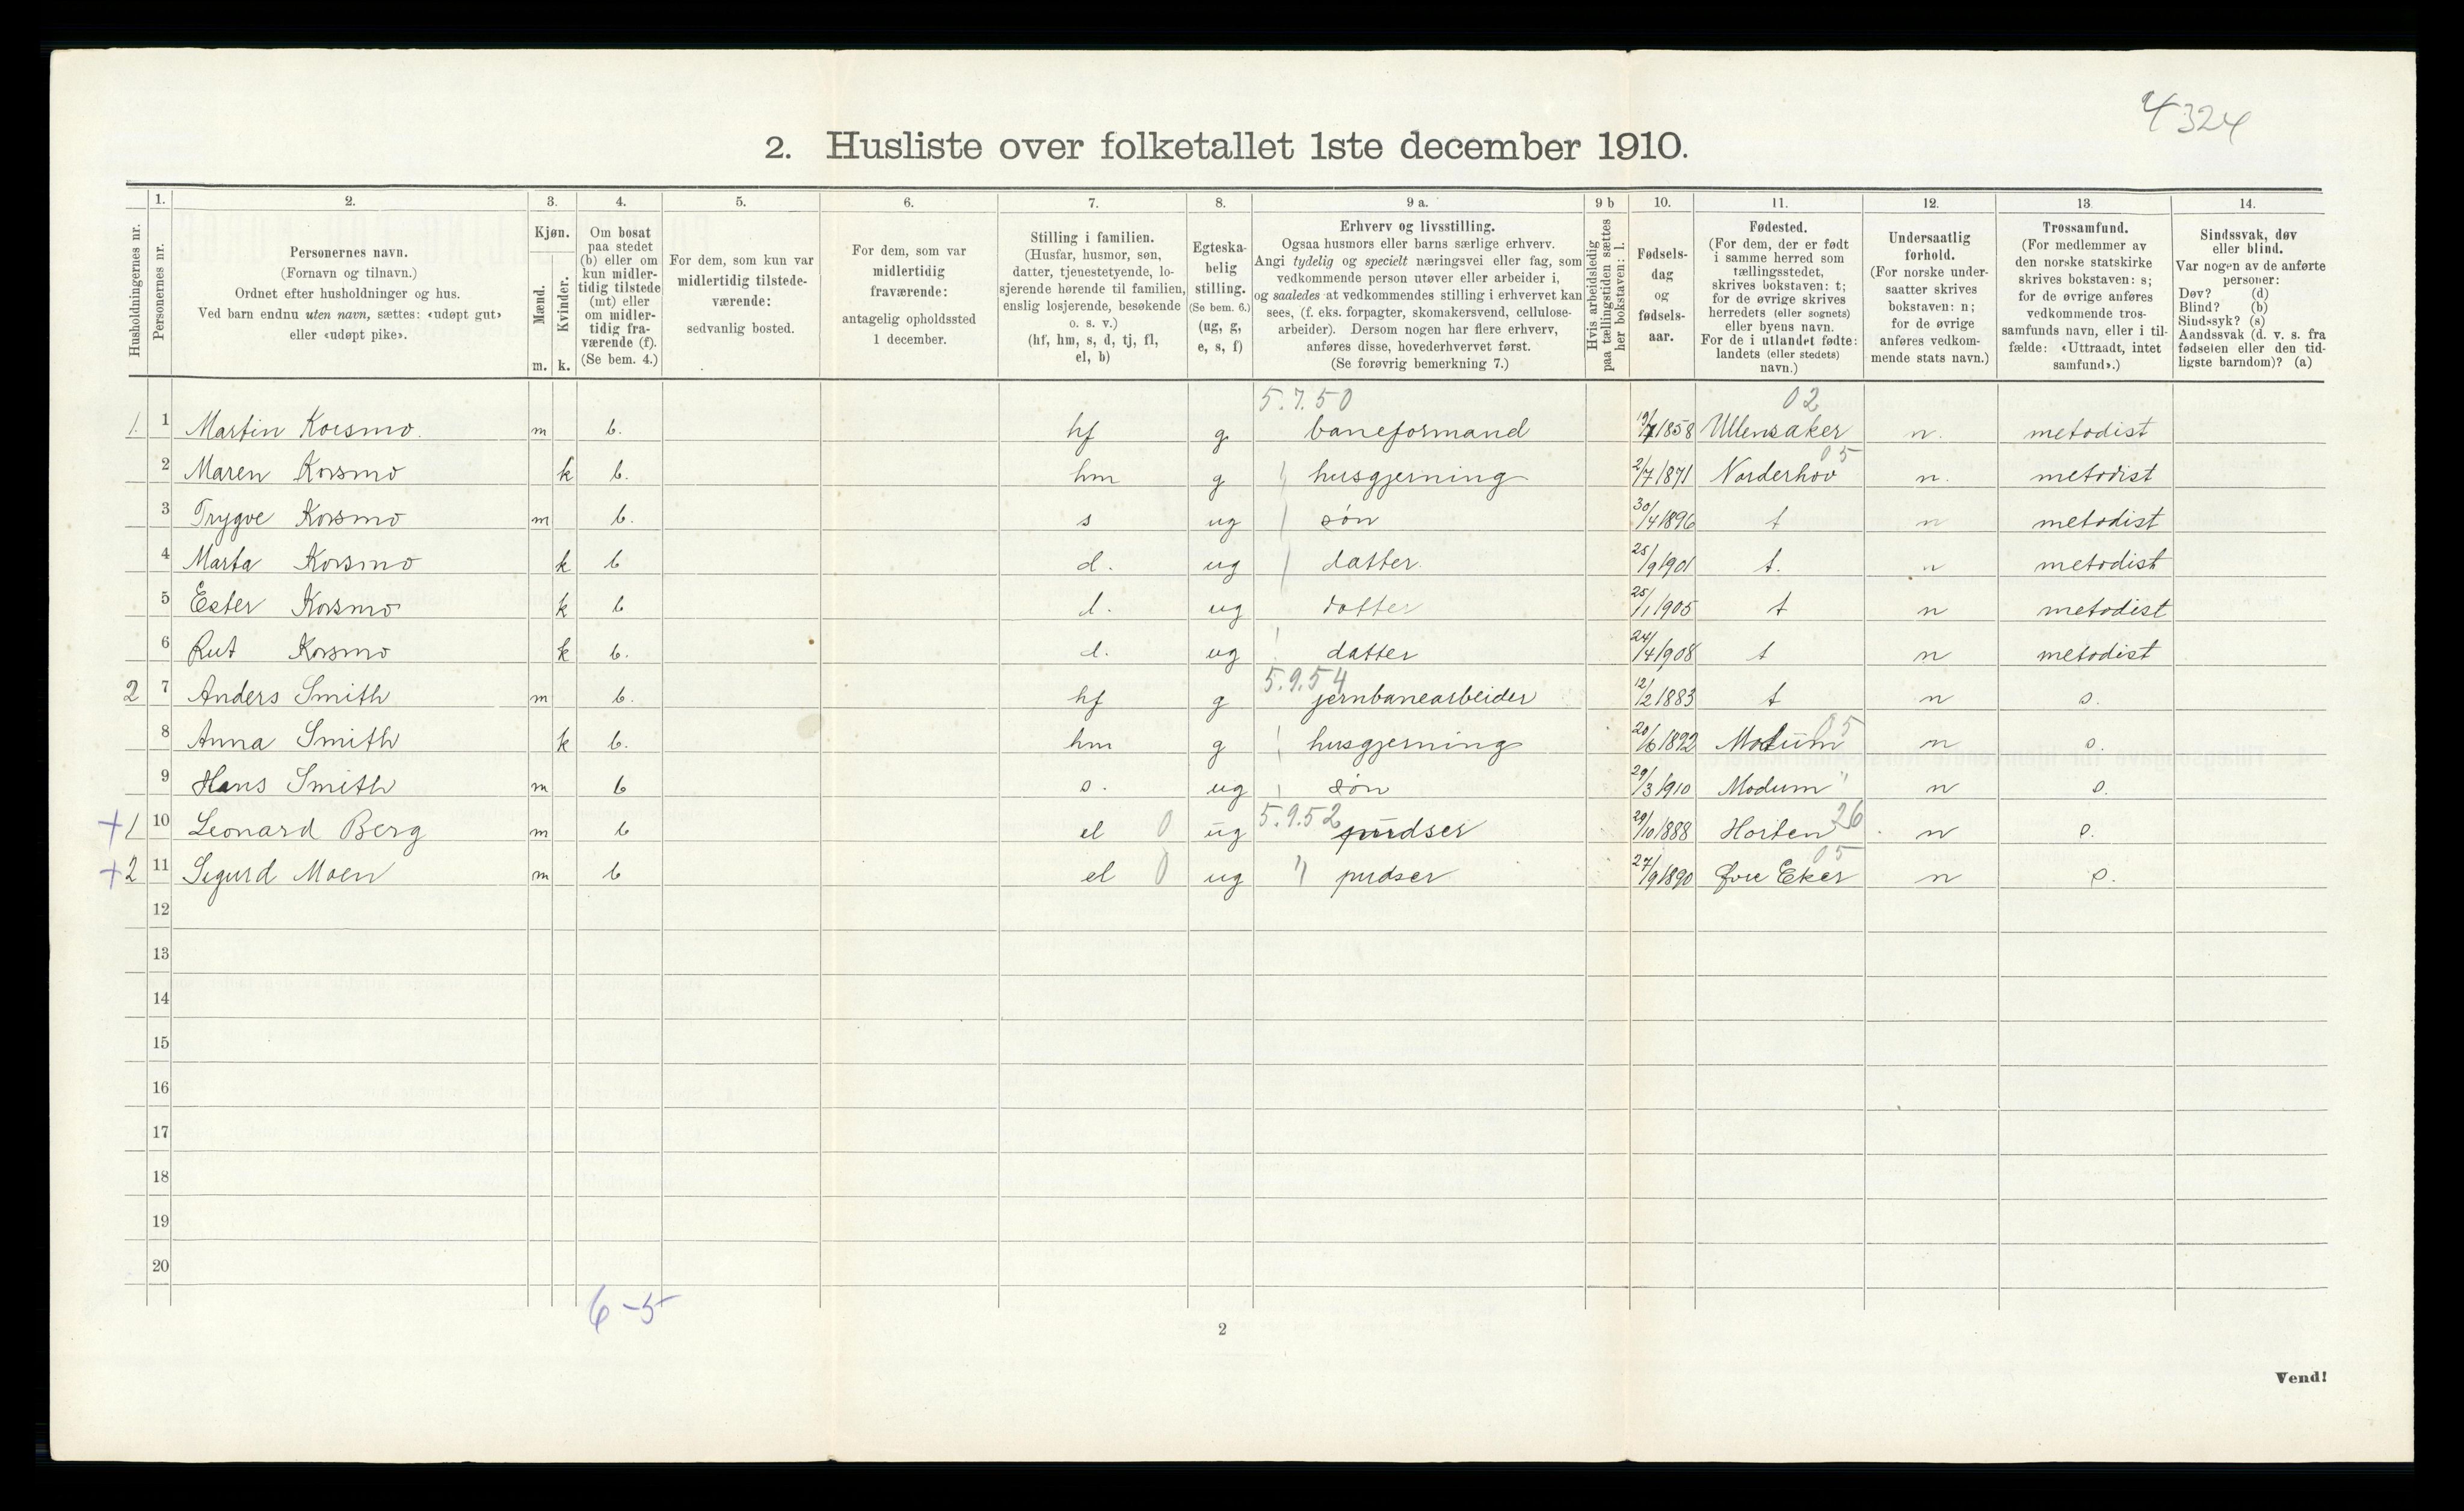 4324
2. Husliste over folketallet 1ste december 1910.
Husholdningernes nr.
1. Personernes nr.
2. Personernes navn. (Fornavn og tilnavn.) Ordnet efter husholdninger og hus. Ved barn endnu uten navn, sættes: «udøpt gut» eller «udøpt pike».
3. Kjøn. Mænd. m. Kvinder. k.
4. Om bosat paa stedet (b) eller om kun midlertidig tilstede (mt) eller om midlertidig fraværende (f). (Se bem. 4.)
5. For dem, som kun var midlertidig tilstedeværende: sedvanlig bosted.
6. For dem, som var midlertidig fraværende: antagelig opholdssted 1 december.
7. Stilling i familien. (Husfar, husmor, søn, datter, tjenestetyende, losjerende hørende til familien, enslig losjerende, besøkende o. s. v.) (hf, hm, s, d, tj, fl, el, b)
8. Egteskabelig stilling. (Se bem. 6.) (ug, g, e, s, f)
9 a. Erhverv og livsstilling. Ogsaa husmors eller barns særlige erhverv. Angi tydelig og specielt næringsvei eller fag, som vedkommende person utøver eller arbeider i, og saaledes at vedkommendes stilling i erhvervet kan sees, (f. eks. forpagter, skomakersvend, cellulosearbeider). Dersom nogen har flere erhverv, anføres disse, hovederhvervet først. (Se forøvrig bemerkning 7.)
9 b Hvis arbeidsledig paa tællingstiden sættes her bokstaven: l.
10. Fødselsdag og fødselsaar.
11. Fødested. (For dem, der er født i samme herred som tællingsstedet, skrives bokstaven: t; for de øvrige skrives herredets (eller sognets) eller byens navn. For de i utlandet fødte: landets (eller stedets) navn.)
12. Undersaatlig forhold. (For norske undersaatter skrives bokstaven: n; for de øvrige anføres vedkommende stats navn.)
13. Trossamfund. (For medlemmer av den norske statskirke skrives bokstaven: s; for de øvrige anføres vedkommende trossamfunds navn, eller i tilfælde: «Uttraadt, intet samfund».)
14. Sindssvak, døv eller blind. Var nogen av de anførte personer: Døv? (d) Blind? (b) Sindssyk? (s) Aandssvak (d. v. s. fra fødselen eller den tidligste barndom)? (a)
5.7.50 02
1. 1 Martin Korsmo. m b. hf g baneformand 19/7 1858 Ullensaker n. metodist
05
2 Maren Korsmo k b. hm g husgjerning 2/7 1871 Norderhov n. metodist
3 Trygve Korsmo m b. s ug søn 30/4 1896 t n metodist
4 Marta Korsmo k b d. ug datter. 25/9 1901 t. n metodist
5 Ester Korsmo k b d. ug datter 25/1 1905 t n metodist
6 Rut Korsmo k b. d. ug datter 24/4 1908 t n metodist
5.9.54
2 7 Anders Smith m b. hf g jernbanearbeider 12/2 1883 t n s.
8 Anna Smith k b. hm g husgjerning 20/6 1892 Modum 05 n s.
9 Hans Smith m b s. ug søn 29/3 1910 Modum " n s.
+1 10 Leonard Berg m b el 0 ug 5.9.52 pudser 29/10 1888 Horten 26 n s.
05
+2 11 Sigurd Moen m b el 0 ug " pudser 27/9 1890 Øvre Eker n s.
12
13
14
15
16
17
18
19
20
6-5
2
Vend!